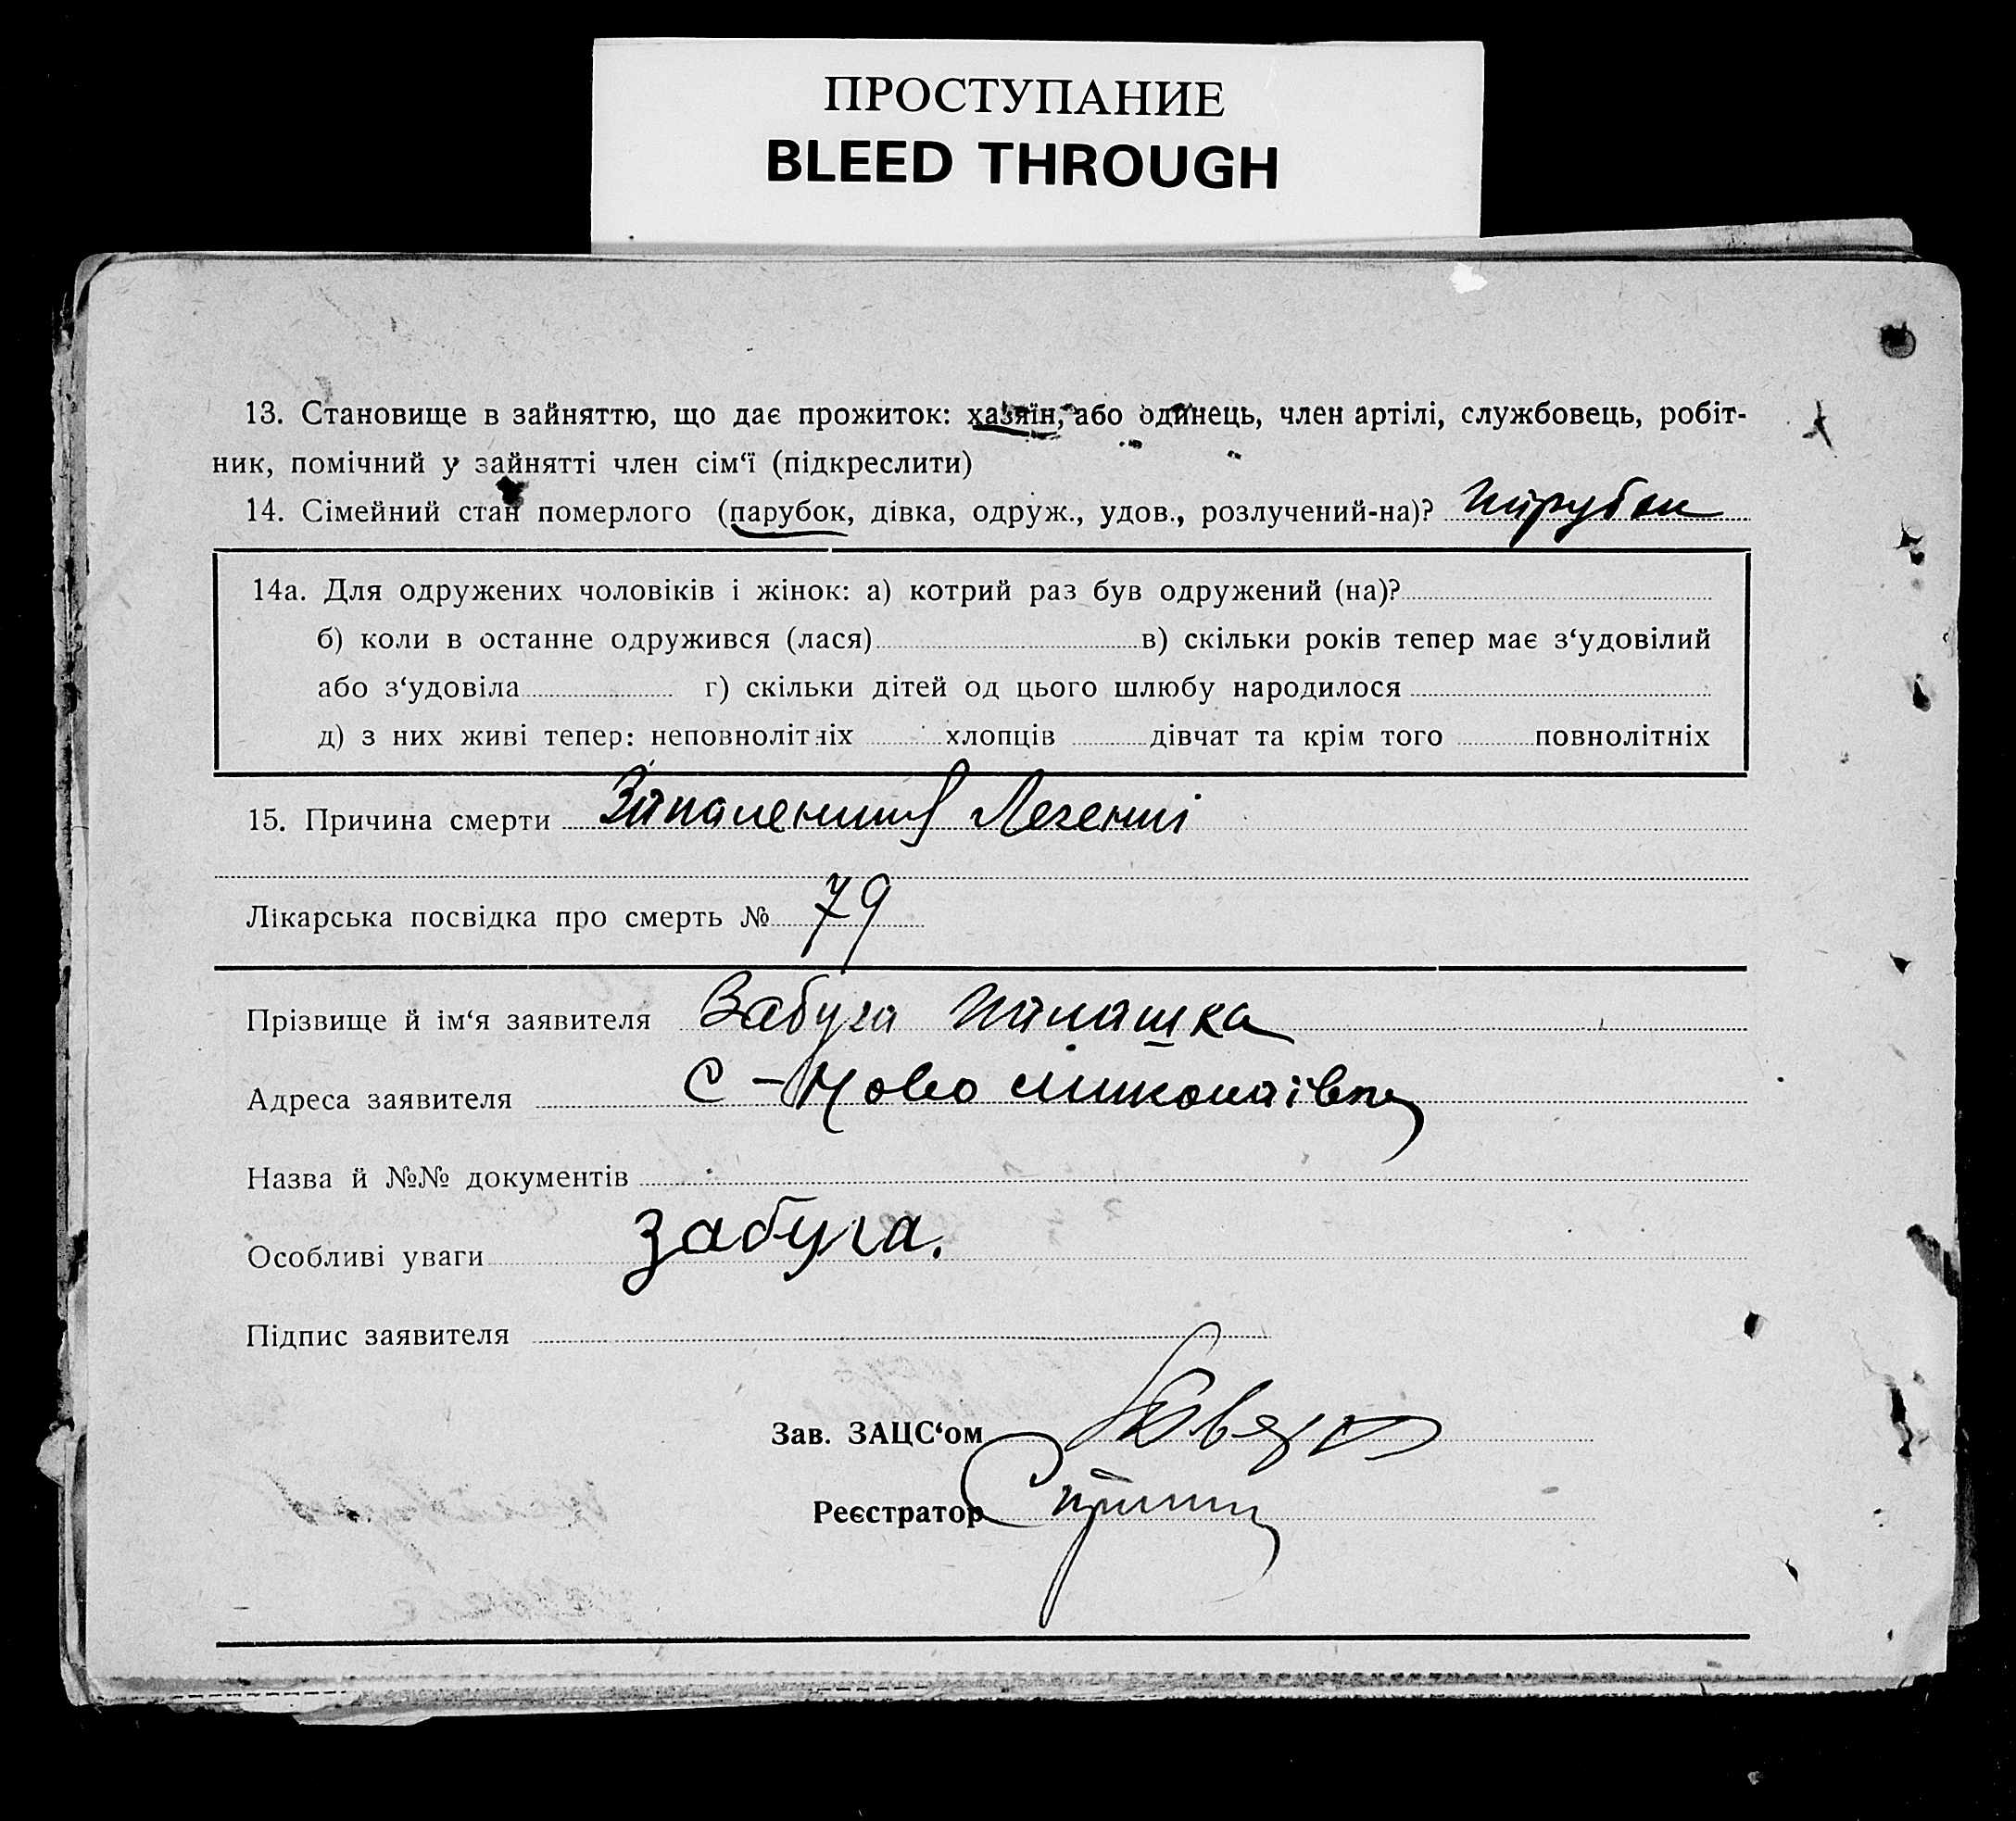 ПРОСТУПАНИЕ
BLEED THROUGH
13. Становище в зайняттю, що дає прожиток: хазяїн, або одинець, член артілі, службовець, робіт-
ник, помічний у зайнятті член сім‘ї (підкреслити)
14. Сімейний стан померлого (парубок, дівка, одруж., удов., розлучений-на)? парубок
14а. Для одружених чоловіків і жінок: а) котрий раз був одружений (на)?
б) коли в останне одружився (лася) в) скільки років тепер має з‘удовілий
або з‘удовіла г) скільки дітей од цього шлюбу народилося
д) з них живі тепер: неповнолітніх хлопців дівчат та крім того повнолітніх
15. Причина смерти Запалення Легенні
Лікарська посвідка про смерть № 79
Прізвище й ім‘я заявителя Забуга Палашка
Адреса заявителя С - Ново миколаівка
Назва й №№ документів
Особливі уваги Забуга.
Підпис заявителя
Зав. ЗАЦС‘ом
Реєстратор